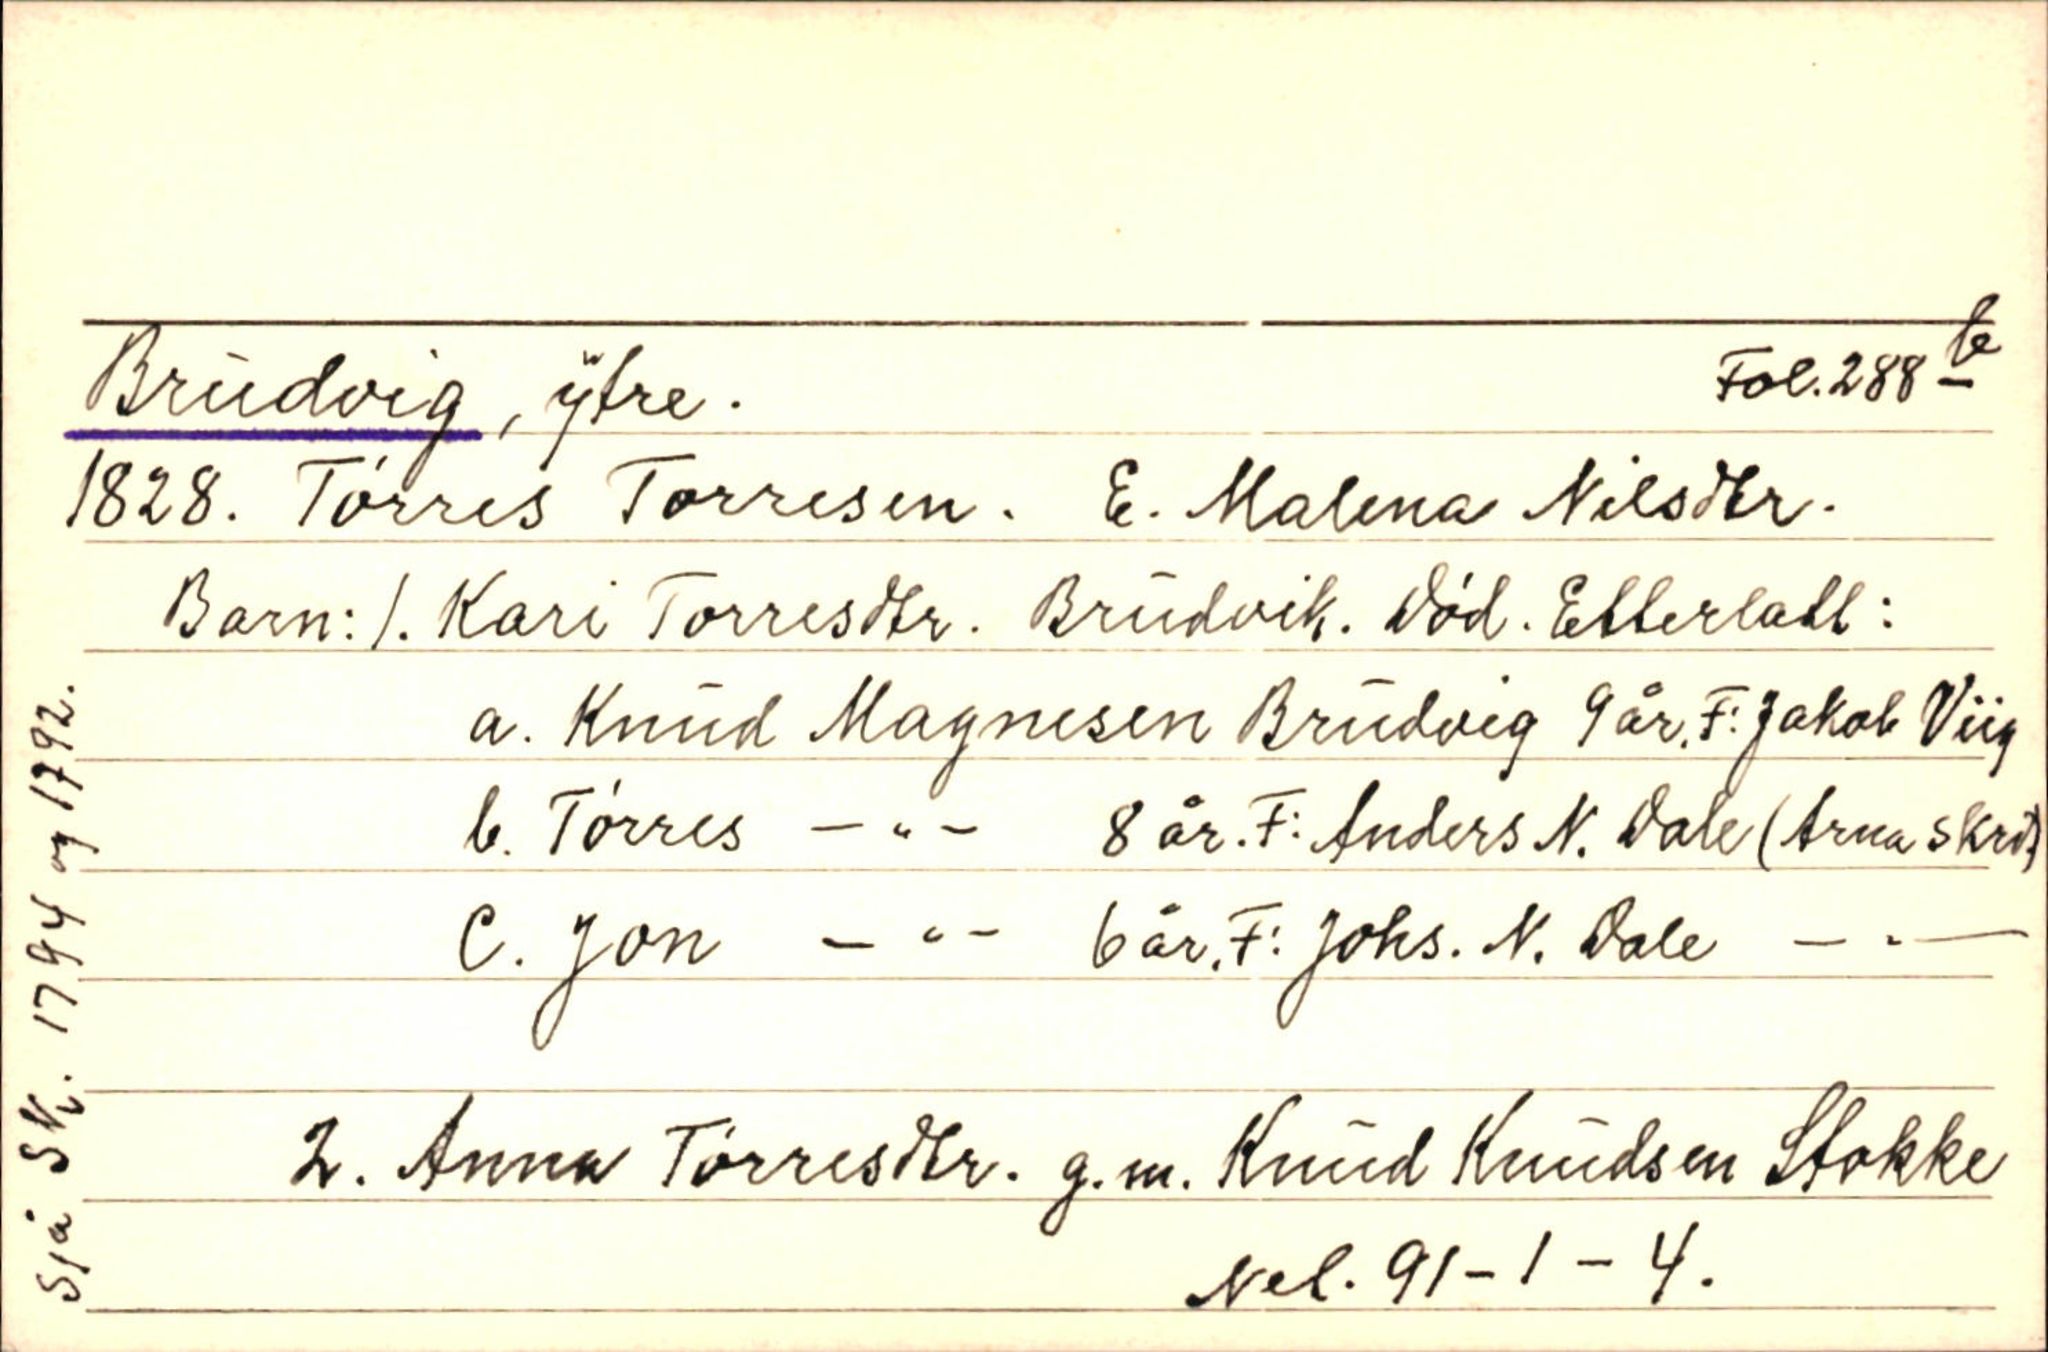 Brudvig, ytre. Fol. 288 b
1828. Tórres Torresen. E. Malena Nilsdtr.
Barn: 1. Kari Torresdtr. Brudvik. Död. Etterlatt:
a. Knud Magnesen Brudvig 9 år. F: Jakob Viig
b. Tórres — " — 8 år. F: Anders N. Dale (Arna skrd)
C. Jon — " — 6 år. F: Johs. N. Dale — " —
2. Anna Tórresdtr. g.m. Knud Knudsen Stokke
Nel. 91-1-4.
Sjå SK. 1794 og 1792.